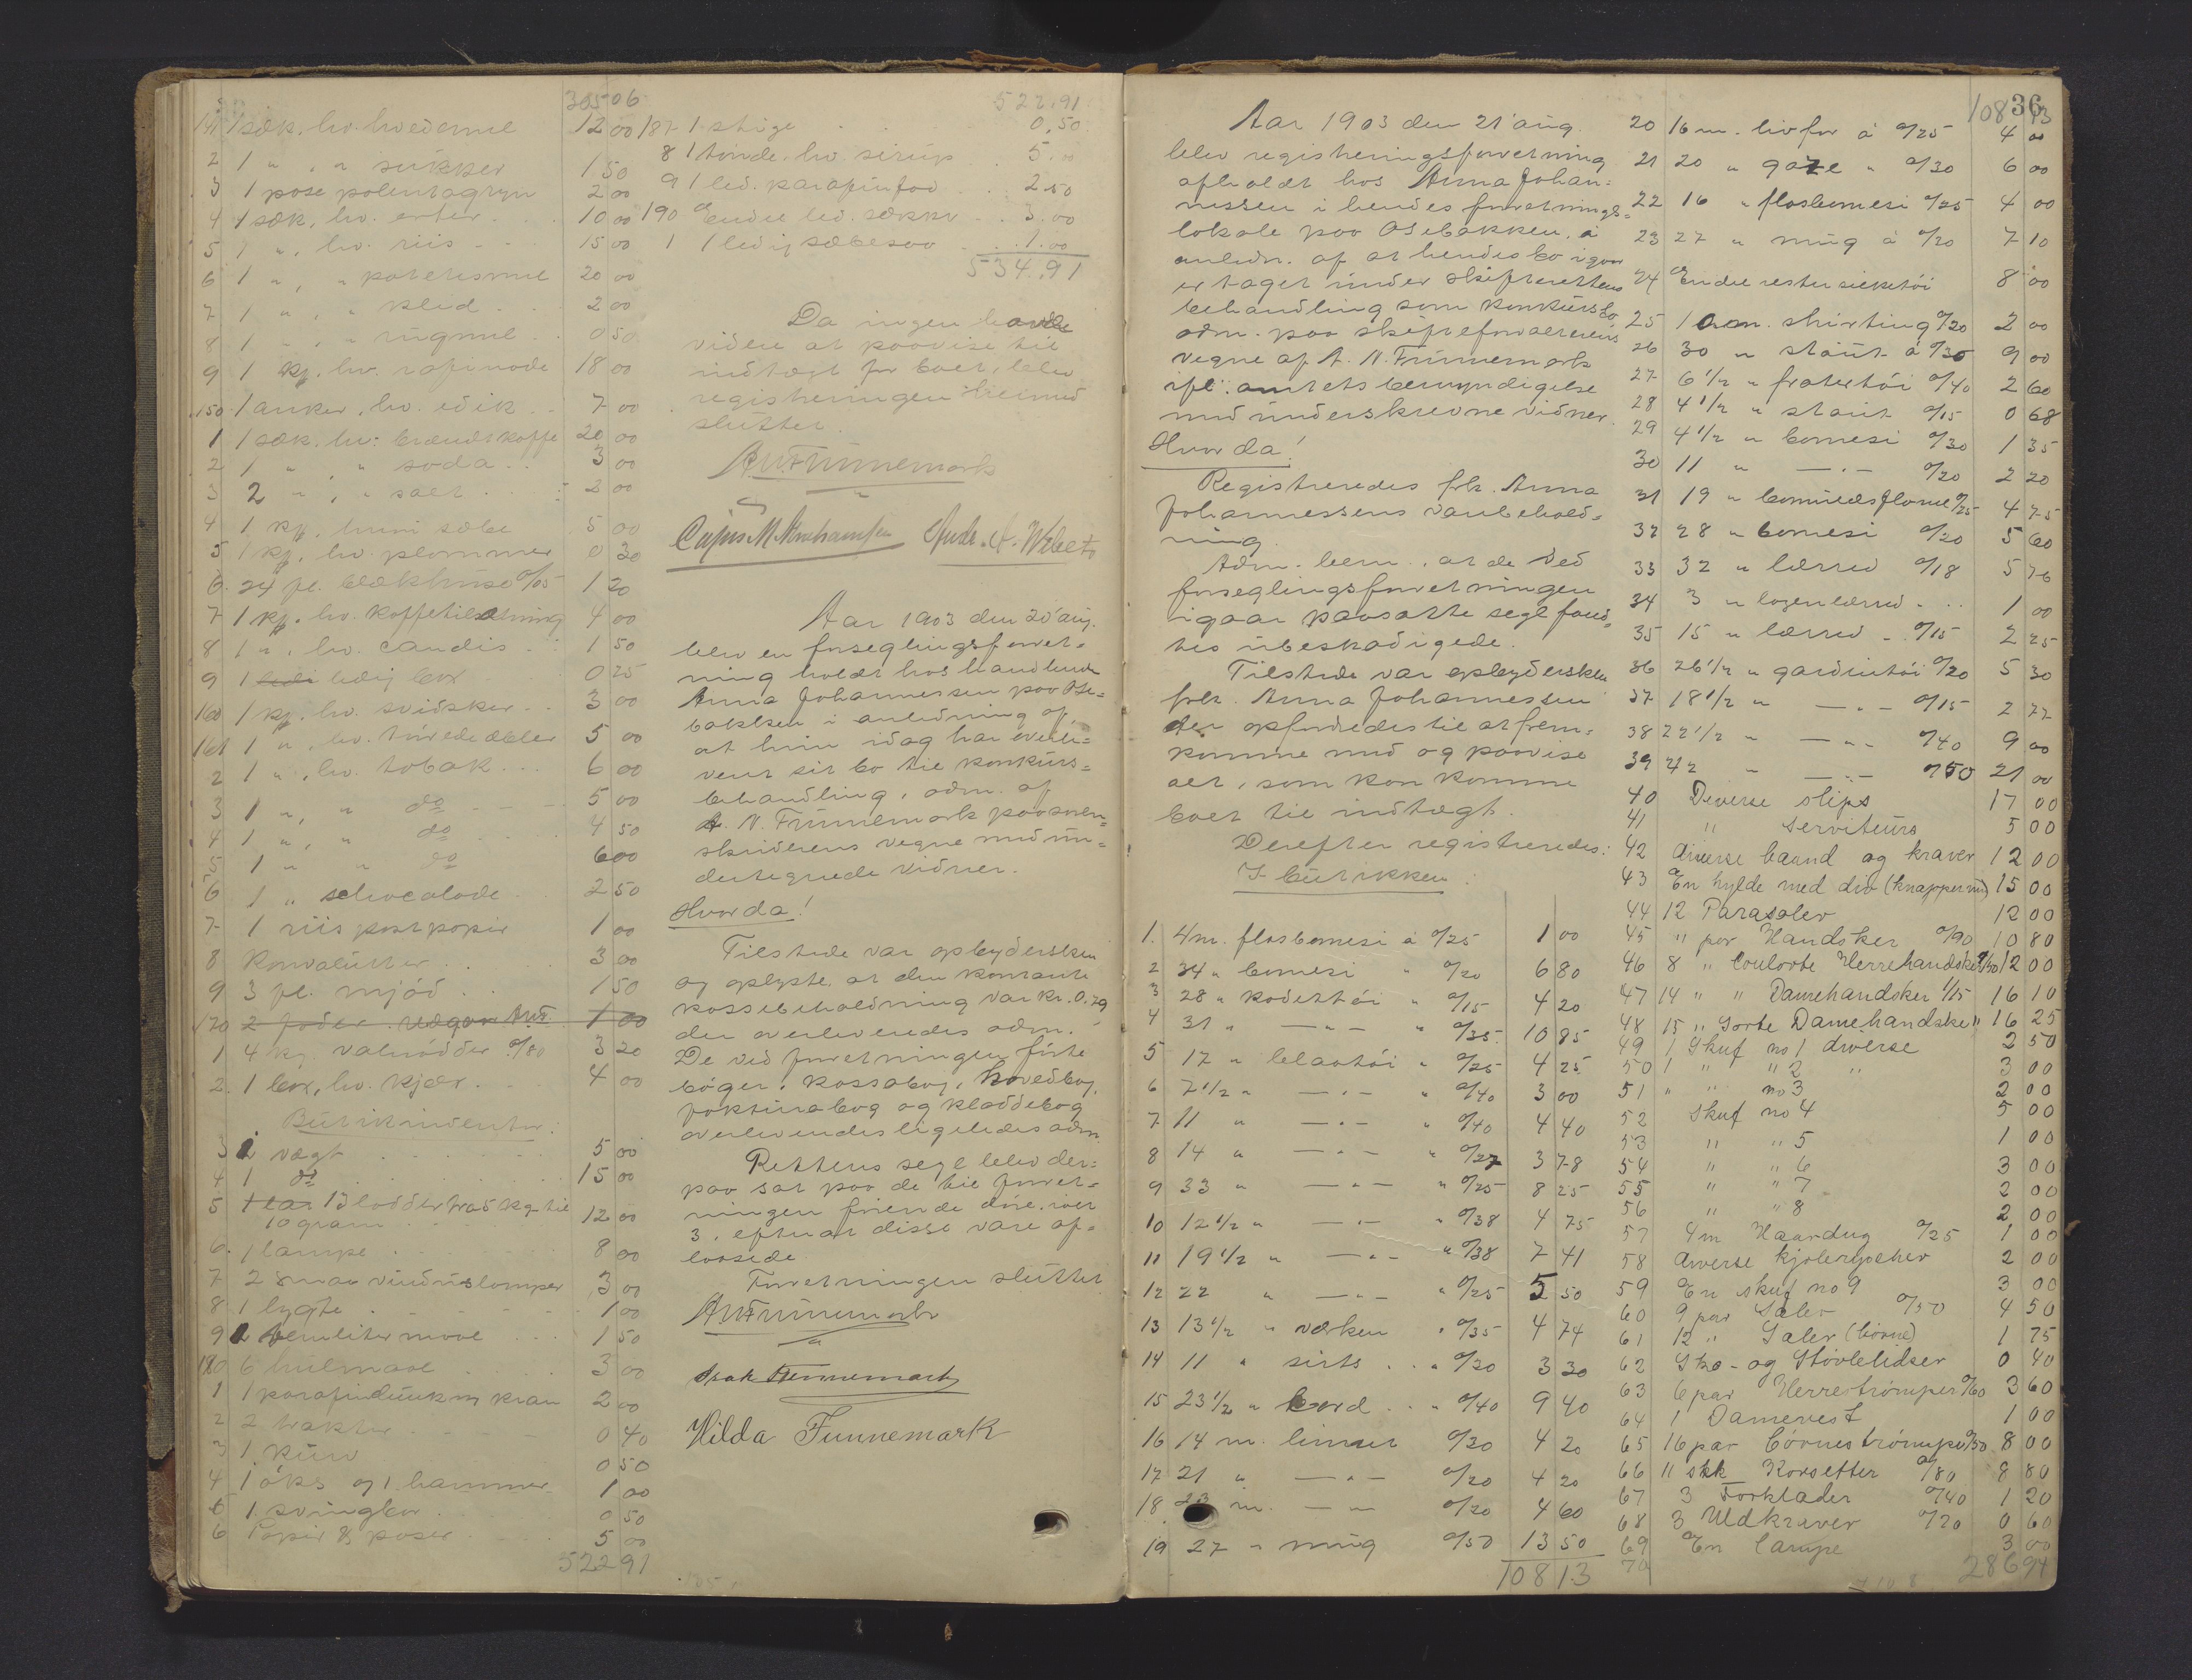 305 06
141 1 sæk, hv. hvedemel 12 00
2 1 " , " sukker 1 50
3 1 pose polentagryn 2 00
4 1 sæk, hv. erter 10 00
5 1 ", hv. riis 15 00
6 1 ", " potetesmel 20 00
7 1 ", " klid 2 00
8 1 ", " rugmel 0 50
9 1 kg. hv. 18 00
150 1 anker, hv. edik 7 00
1 1 sæk. hv: brændt kaffe 20 00
2 1 " " soda 3 00
3 2 " , " salt 2 00
4 1 kg. sæbe 5 00
5 1 kg. hv. plommer 0 30
6 24 fl. blækhuse 0/05 1 20
7 1 kg. hv. kaffetilsætning 4 00
8 1 ", hv. candis 1 50
9 1 ledig box 0 25
160 1 kg. hv. svidsker 3 00
161 1 ", hv. tørede æbler 5 00
2 1 ", hv. tobak 6 00
3 1 ", " do 5 00
4 1 ", " do 4 50
5 1 " " do 6 00
6 1 " schocolade 2 50
7 1 riis postpapir 1 00
8 Konvolutter 3 00
9 3 fl. mjød 1 50
170 2 1 00
1 4 kg. valnødder 0/80 3 20
2 1 box, hv. kjæx 4 00
Butikinventar:
3 1 vægt 5 00
4 1 do 15 00
5 13 lodder fra 5 kg til
10 gram 12 00
6 1 lampe 8 00
7 2 smaa vinduslamper 3 00
8 1 lygte 1 00
9 1 1 50
180 6 hulmaal 3 00
1 1 parafindunk m kran 2 00
2 2 trakter 0 40
3 1 kurv 0 50
4 1 øks og 1 hammer 1 00
5 1 svingbor 0 50
6 Papir & poser 5 00
522 91
522.91
187 1 stige 0.50
8 1 tønde. hv. sirup 5.00
9 1 led. parafinfad 2.50
190 Endel led. sækker 3.00
1 1 ledig sæbesaa 1.00
534.91
Da ingen havde
videre at paavise til
indtægt for boet, blev
registreringen hermed
sluttet.
A. N. Funnemark
Aar 1903 den 20' aug.
blev en forseglingsforret-
ning holdt hos handlende
Anna Johannessen paa Ose-
bakken i anledning af
at hun idag har overle-
vert sit bo til konkurs-
behandling, adm. af
A. N. Funnemark paa
skriverens vegne med un-
dertegnede vidner.
Hvorda!
Tilstede var opbydersken
og oplyste at den kontante
kassebeholdning var kr. 0.29
der overleveredes adm.
De ved forretningen førte
bøger, kassabog, hovedbog,
fakturabog og kladdebog
overleveredes ligeledes adm.
Rettens segl blev der-
paa sat paa de til forret-
ningen førende døre, i alt
3, efter at disse vare af-
laasede
Forretningen sluttet
A. N. Funnemark
Isak Funnemark
Hilda Funnemark
36
Aar 1903 den 21' aug.
blev registreringsforretning
afholdt hos Anna Johan-
nessen i hendes forretnings-
lokale paa Osebakken, i
anledn. af at hendes bo igaar
er taget under skifterettens
behandling som konkursbo
adm. paa skifteforvalterens
vegne af A. N. Funnemark
ifl. amtets bemyndigelse
med underskrevne vidner.
Hvorda!
Registreredes frk. Anna
Johannessens varebehold-
ning.
Adm. bem., at de ved
forseglingsforretningen
igaar paasatte segl fand-
tes ubeskadigede.
Tilstede var opbydersken
frk. Anna Johannessen
der opfordredes til at frem-
komme med og paavise
alt, som kan komme
boet til indtægt.
Derefter registreredes:
I butikken:
1. 4 m. flosbomesi á 0/25 1 00
2 34 " bomesi " 0/20 6 80
3 28 " kodettøi " 0/15 4 20
4 31 " — " — " 0/35 10 85
5 17 " klædtøi " 0/25 4 25
6 7 1/2 " — " — " 0/40 3 00
7 11 " — " — " 0/40 4 40
8 14 " — " — " 0/27 3 78
9 33 " — " — " 0/25 8 25
10 12 1/2 " — " — " 0/38 4 75
11 19 1/2 " — " — " 0/38 7 41
12 22 " — " — " 0/25 5 50
13 13 1/2 " værken " 0/35 4 74
14 11 " sirts " 0/30 3 30
15 23 1/2 " " 0/40 9 40
16 14 m. 0/30 4 20
17 21 " — " — 0/20 4 20
18 23 m. — " — 0/20 4 60
19 27 " 0/50 13 50
108 13
108 13
20 16 m. livfor á 0/25 4 00
21 20 " gaze " 0/30 6 00
22 16 " flosbomesi 0/25 4 00
23 27 " á 0/20 7 10
24 Endel rester silketøi 8 00
25 10 m. shirting 0/20 2 00
26 30 " stout á 0/30 9 00
27 6 1/2 " frotertøi 0/40 2 60
28 4 1/2 " stout 0/15 0 68
29 4 1/2 " bomesi 0/30 1 35
30 11 " — " — 0/20 2 20
31 19 " bomuldsflonel 0/25 4 75
32 28 " bomesi 0/20 5 60
33 32 " lærred 0/18 5 76
34 3 " lagenlærred 1 00
35 15 " lærred 0/15 2 25
36 26 1/2 " gardintøi 0/20 5 30
37 18 1/2 " — " — 0/15 2 77
38 22 1/2 " — " — 0/40 9 00
39 42 " — " — 0/50 21 00
40 Diverse slips 17 00
41 " Serviteurs 5 00
42 diverse baand og kraver 12 00
43 En hylde med div (knapper m) 15 00
44 12 Parasoler 12 00
45 " par Handsker 0/90 10 80
46 8 " Coulorte Herrehandsker 1/50 12 00
47 14 " " Damehandsker 1/15 16 10
48 15 " Sorte Damehandske " 16 25
49 1 Skuf no 1 diverse 2 50
50 1 " " 2 " 3 00
51 " " no 3 2 00
52 Skuf no 4 5 00
53 " " 5 1 00
54 " " 6 3 00
55 " " 7 2 00
56 " " 8 2 00
57 4 m Haandug 0/25 1 00
58 diverse kjoleryscher 2 00
59 En skuf no 9 3 00
60 9 par Saler 0/50 4 50
61 12 " Saler (børne) 1 75
62 Sko- og Støvletidser 0 40
63 6 par Herrestrømper 0/60 3 60
64 1 Damevest 1 00
65 16 par Børnestrømper 0/50 8 00
66 11 stk Korsetter 0/80 8 80
67 3 Forklader 0/40 1 20
68 3 Uldkraver 0/20 0 60
69 En Lampe 3 00
70 286 94